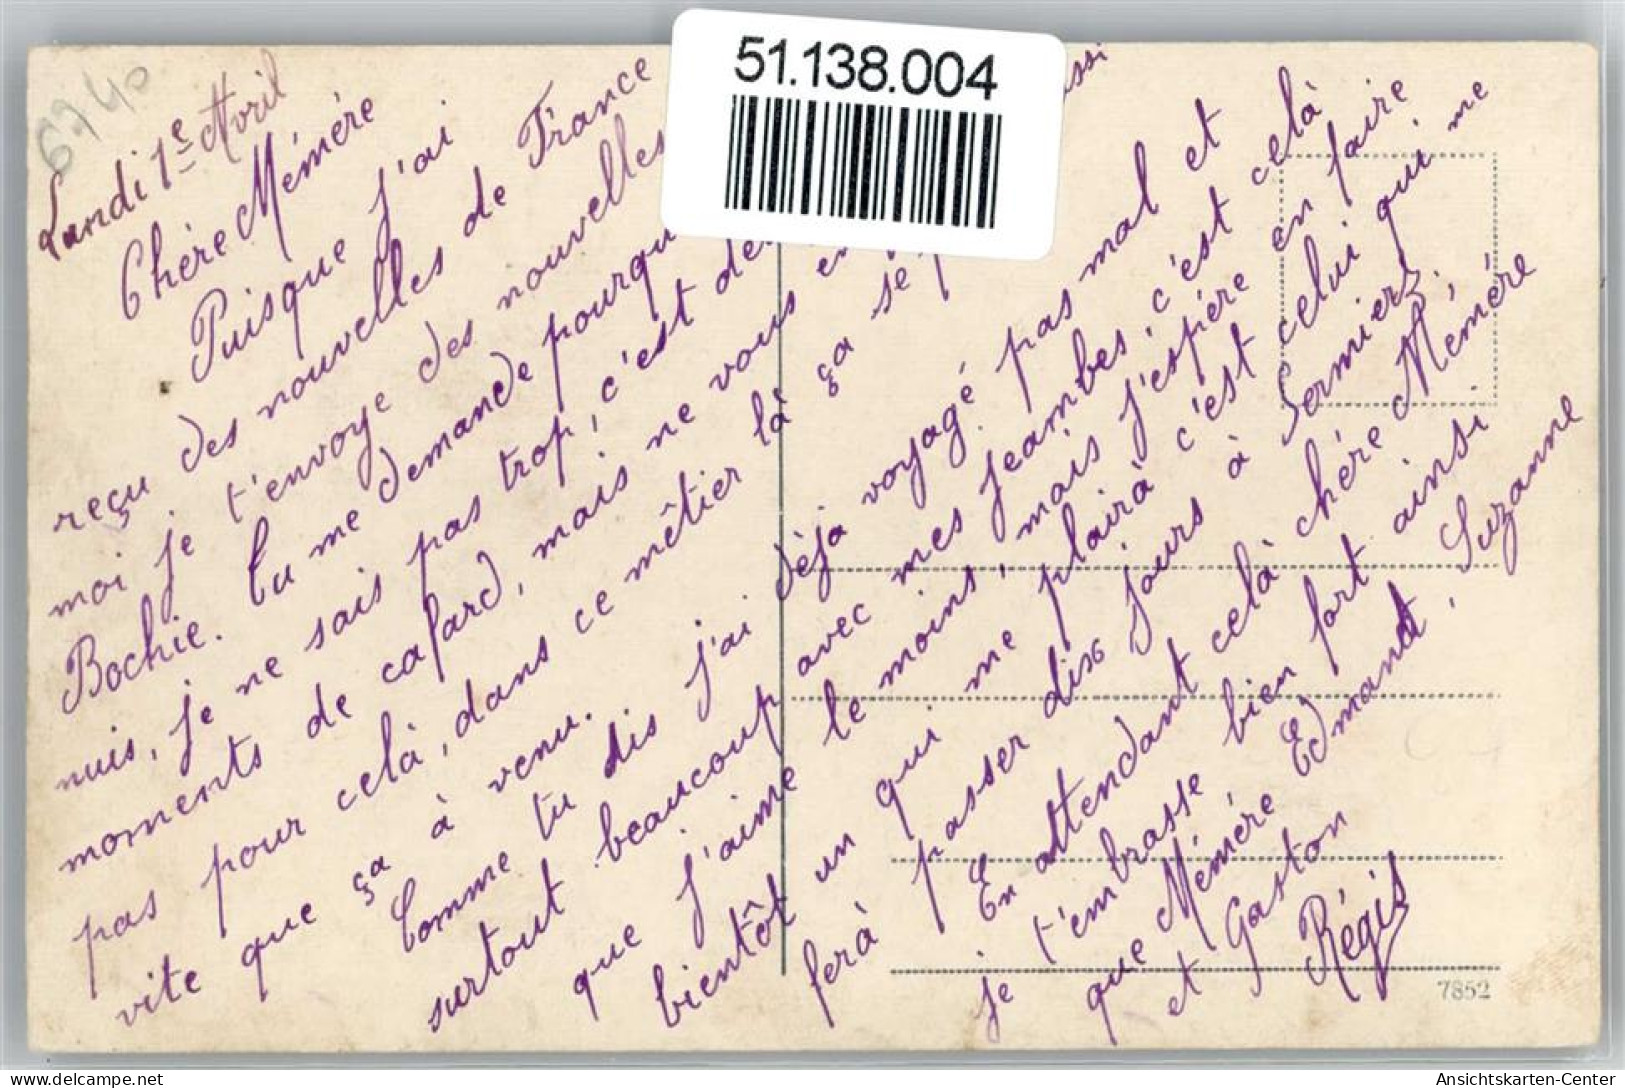 6740
51.138.004
Lundi 1e Avril
Chère Mémére
Puisque j'ai
reçu des nouvelles de France
moi je t'envoye des nouvelles
Bochie. Tu me demande pourqu
nuis, je ne sais pas trop, c'est des
moments de cafard, mais ne vous en
pas pour celà, dans ce mêtier là ça se p
ssi
vite que ça à venu.
Comme tu dis j'ai déja voyagé pas mal et
surtout beaucoup avec mes jeambes, c'est celà
que j'aime le moins, mais j'espère en faire
bientôt un qui me plairà c'est celui qui me
ferà passer dix jours à Sermiers,
En attendant celà chère Memére
je t'embrasse bien fort ainsi
que Mémére Edmand, Suzanne
et Gaston
Régis
7852
Ansichtskarten-Center